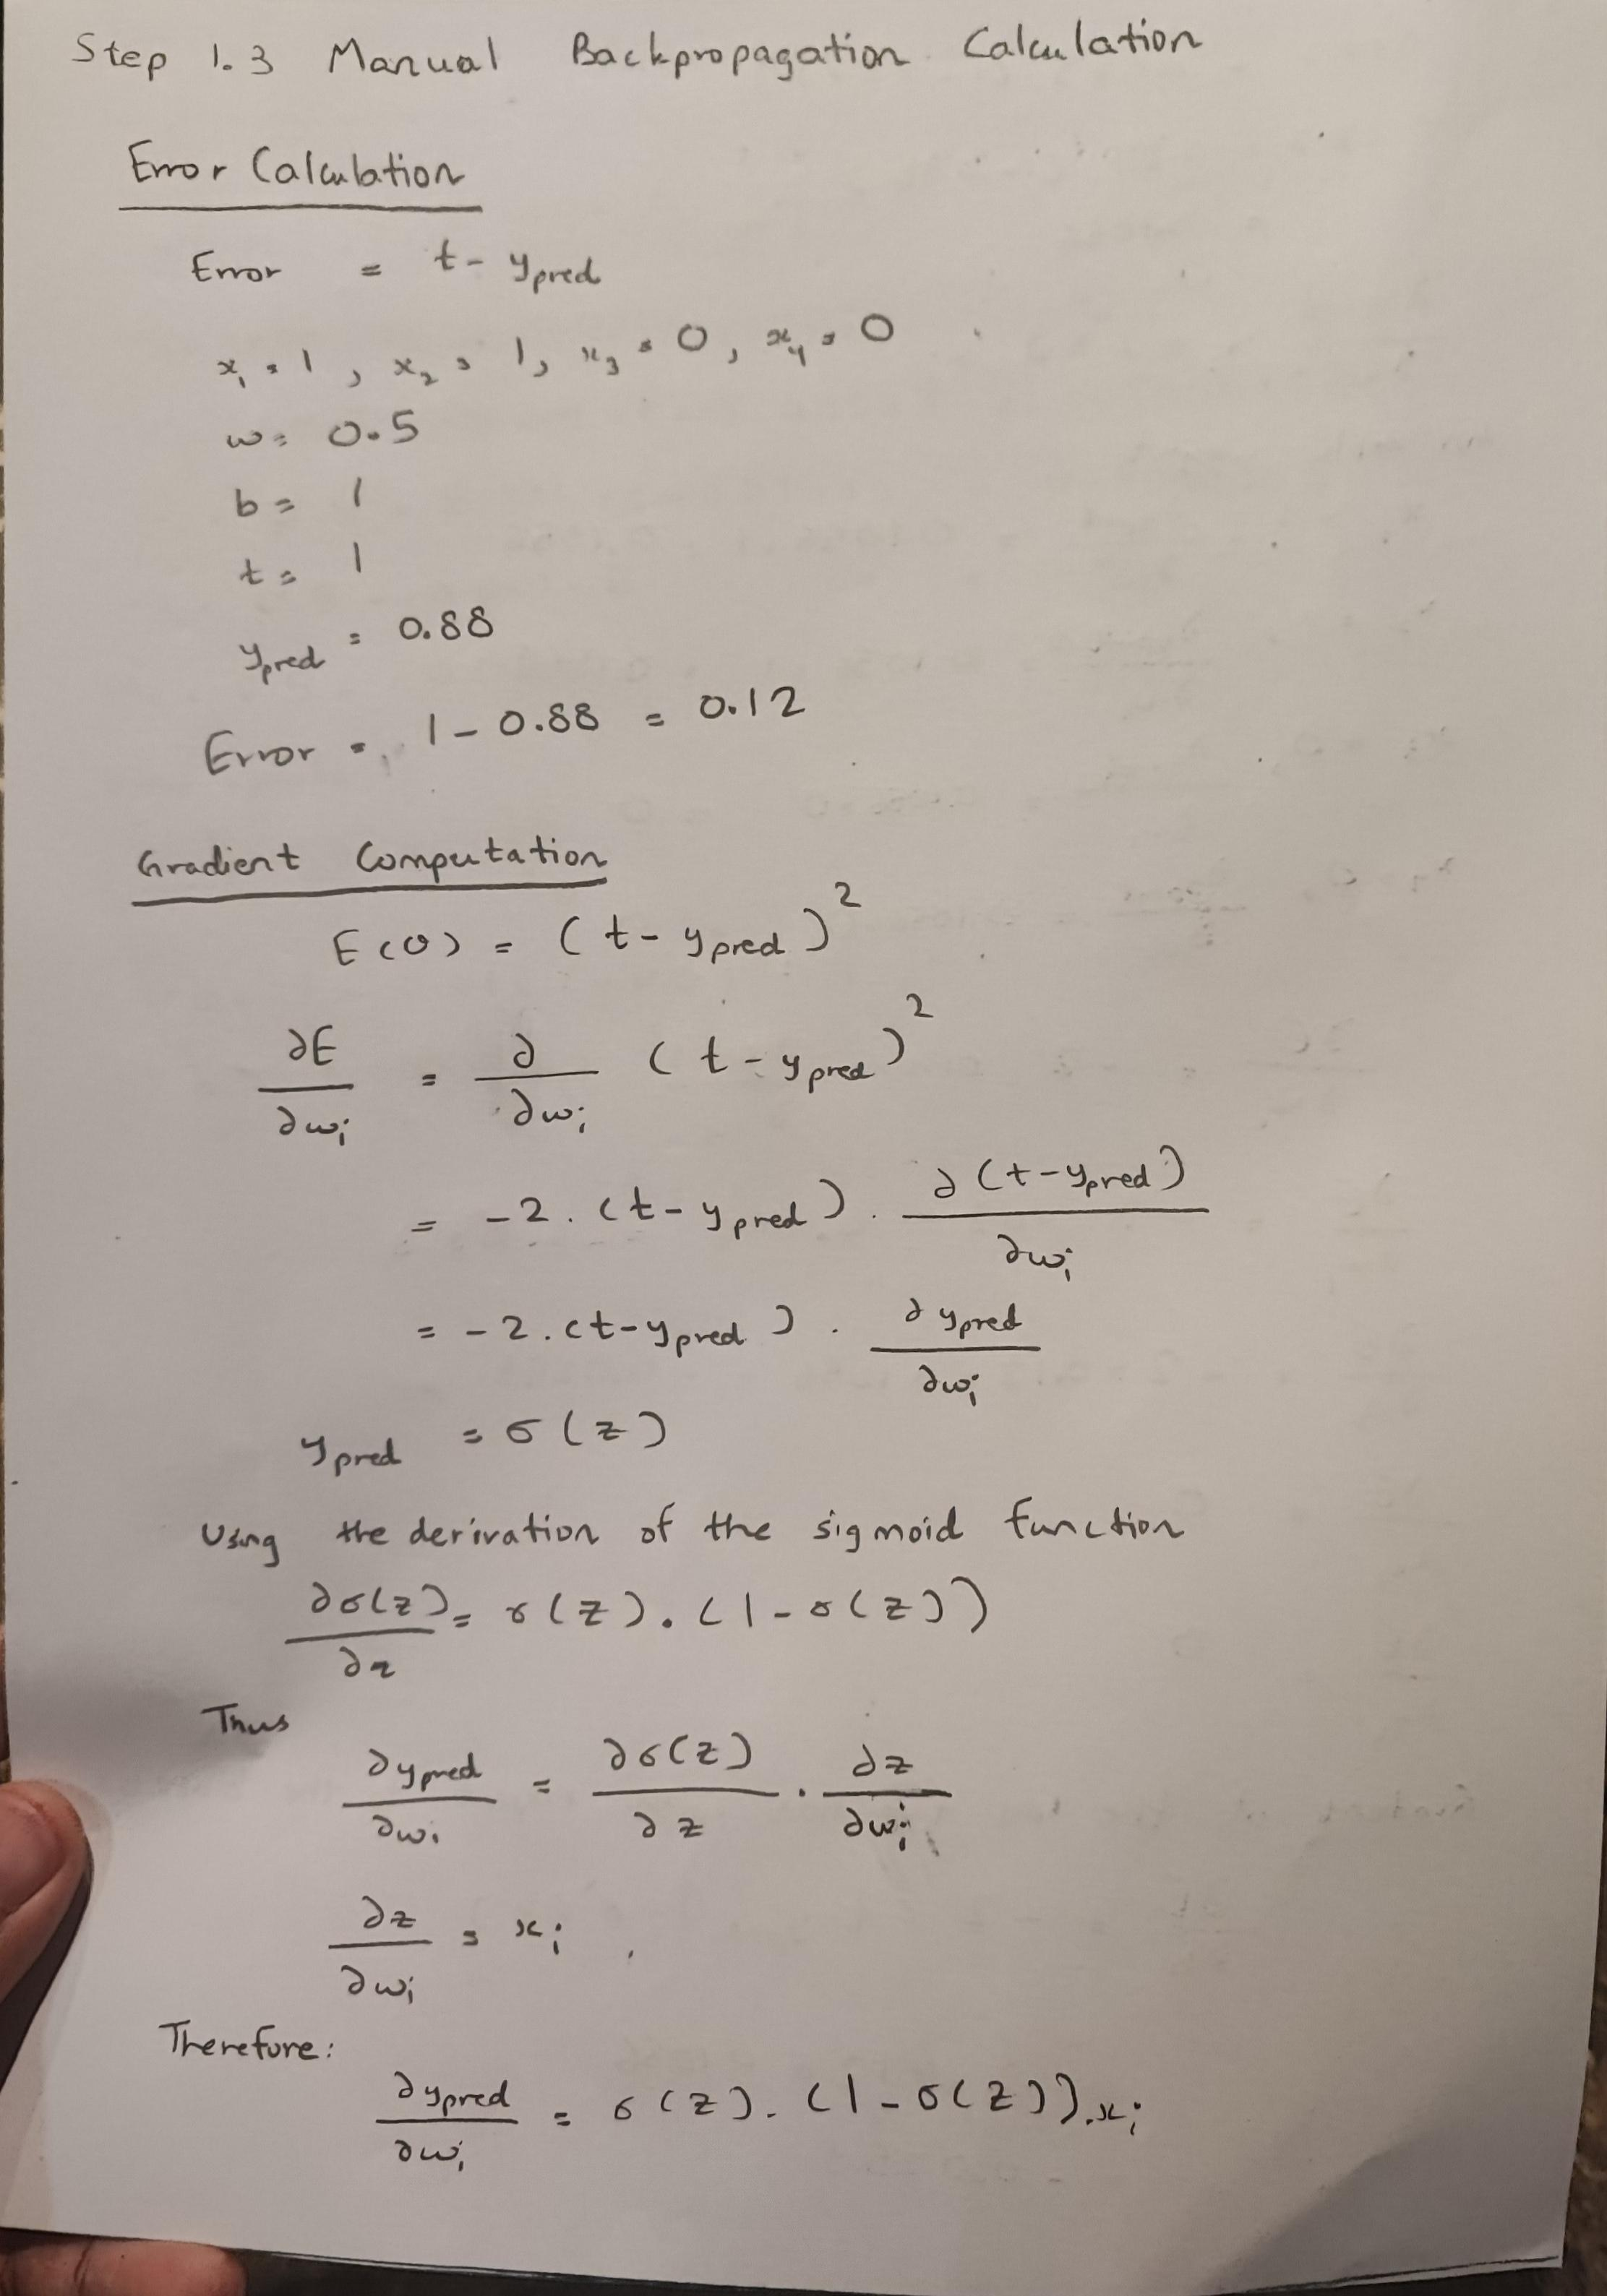 Step 1.3 Manual Backpropagation Calculation
Error Calculation
Error = t - y_pred
x₁ = 1, x₂ = 1, x₃ = 0, x₄ = 0
w = 0.5
b = 1
t = 1
y_pred = 0.88
Error = 1 - 0.88 = 0.12
Gradient Computation
E(0) = (t - y_pred)²
∂E/∂wᵢ = ∂/∂wᵢ (t - y_pred)²
= -2 . (t - y_pred) . ∂(t - y_pred)/∂wᵢ
= -2 . (t - y_pred) . ∂y_pred/∂wᵢ
y_pred = σ(z)
Using the derivation of the sigmoid function
∂σ(z)/∂z = σ(z) . (1 - σ(z))
Thus
∂y_pred/∂wᵢ = ∂σ(z)/∂z . ∂z/∂wᵢ
∂z/∂wᵢ = xᵢ
Therefore:
∂y_pred/∂wᵢ = σ(z) . (1 - σ(z)) . xᵢ